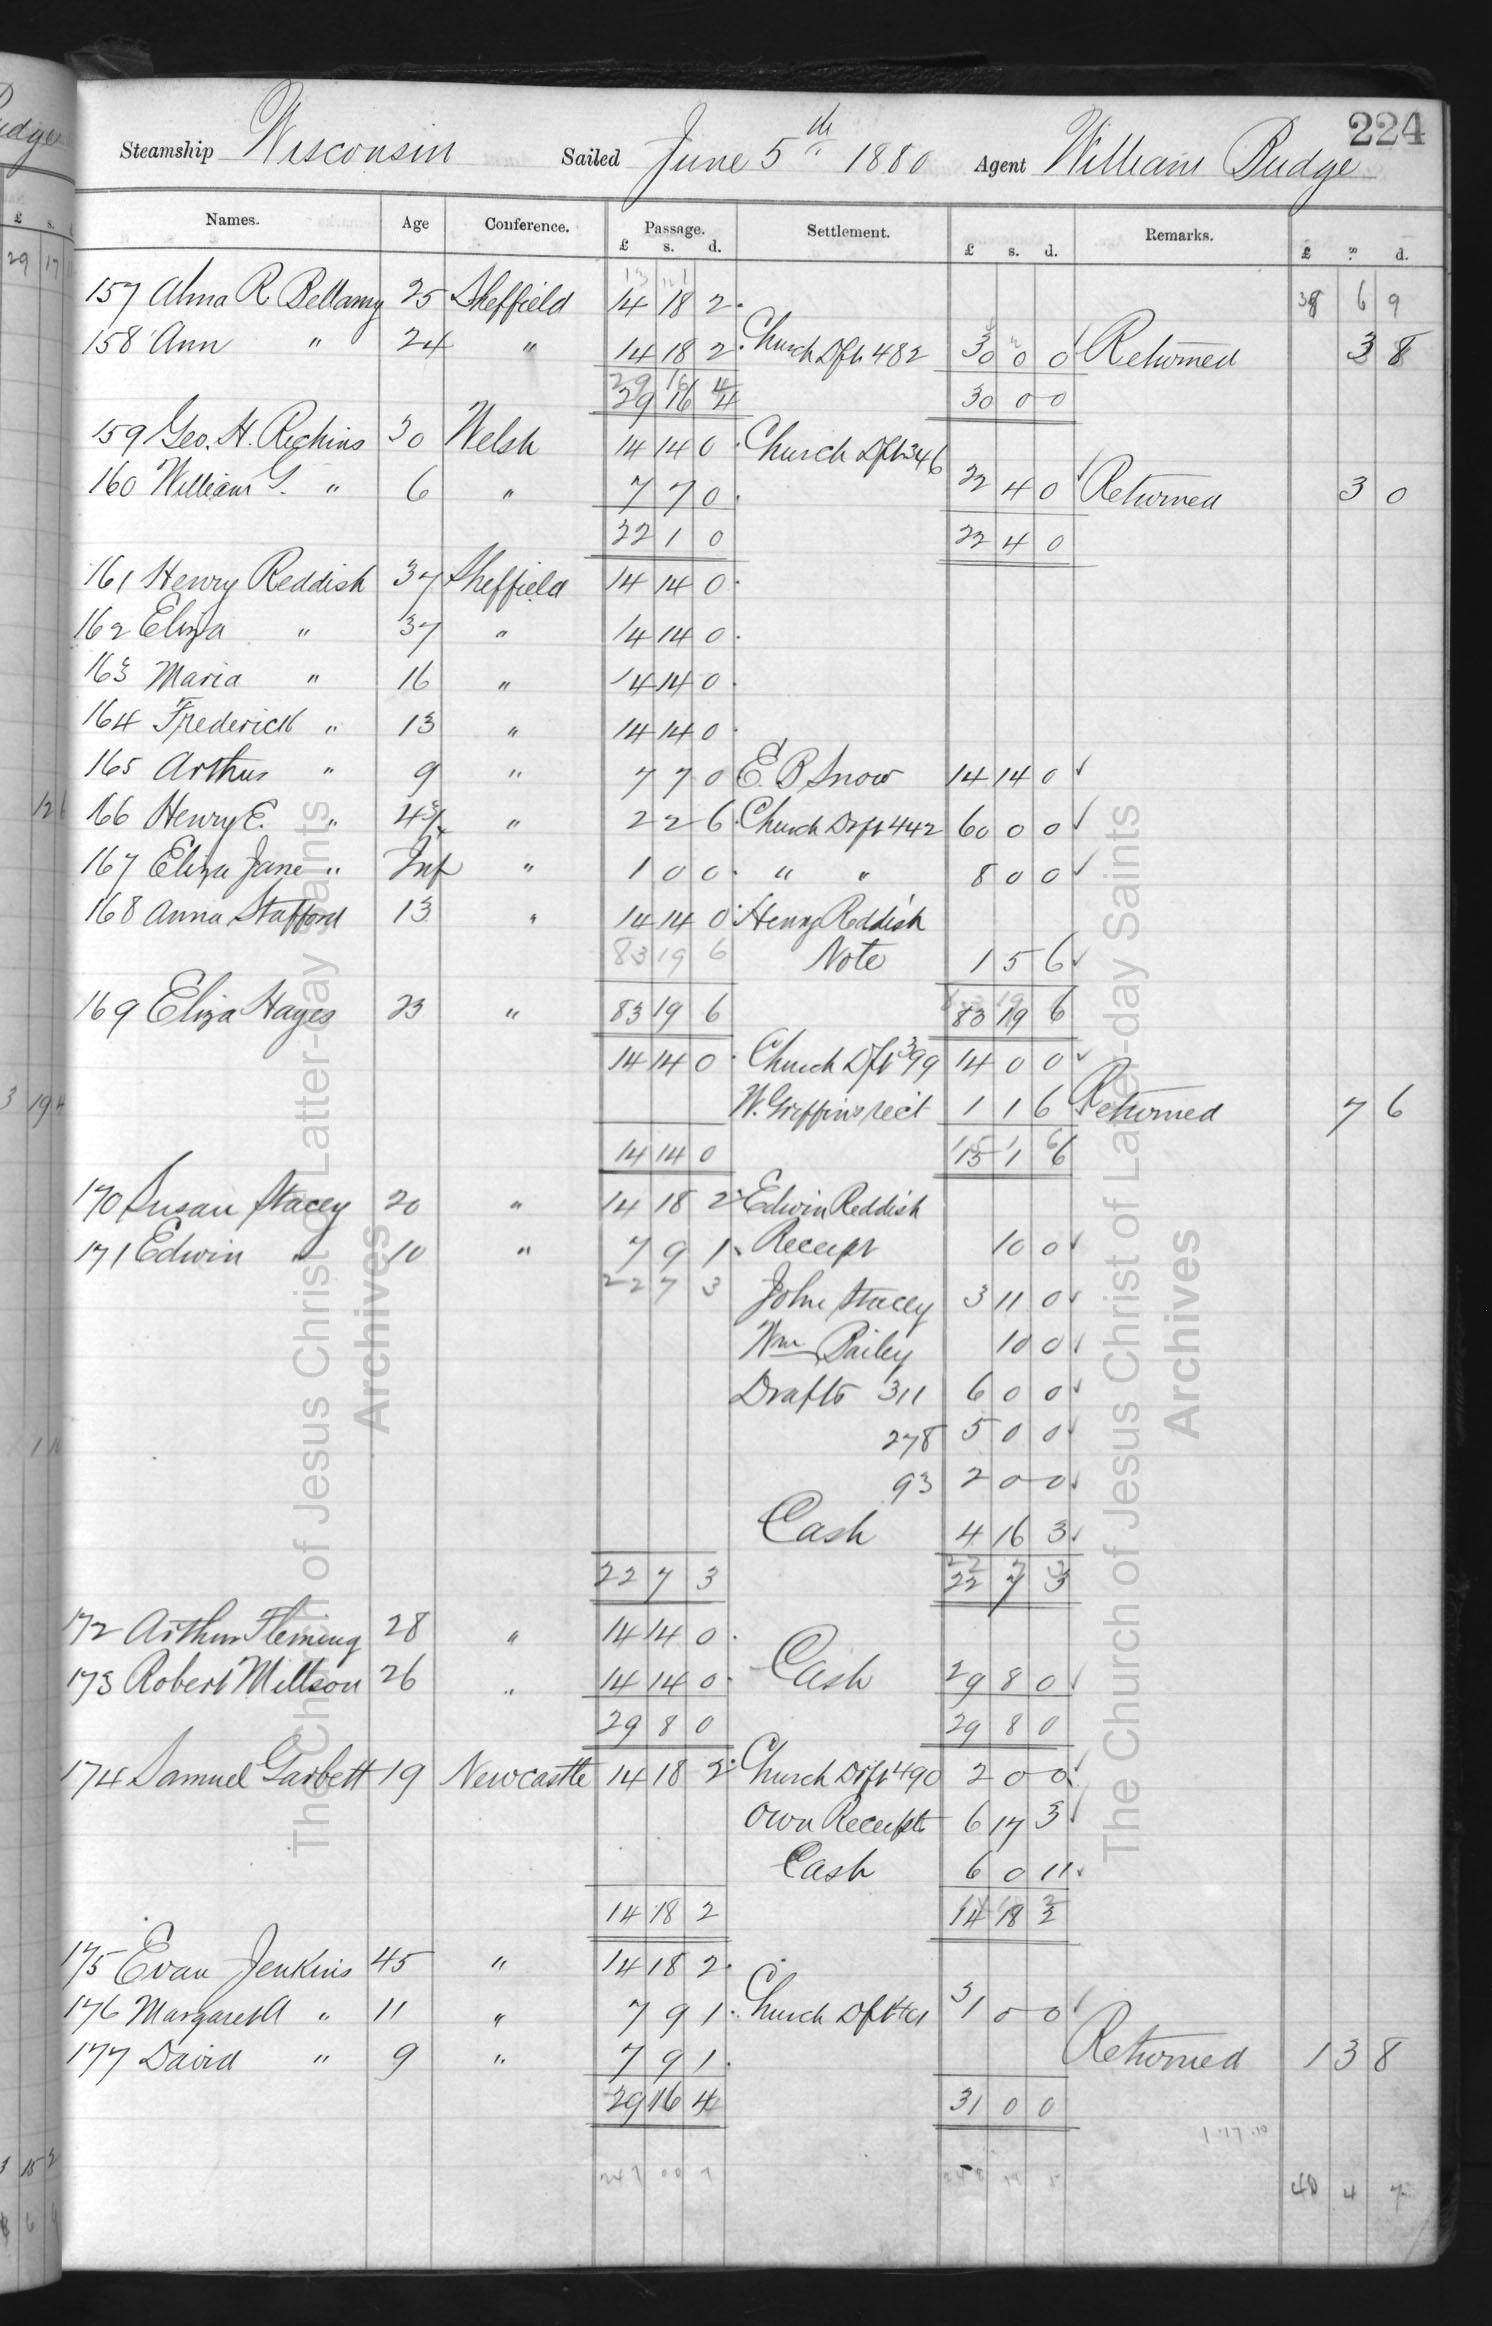 224
Steamship Wisconsin Sailed June 5th 1880 Agent William Budge
Names. Age Conference. Passage. Settlement. Remarks.
£ s. d. £ s. d. £ s. d.
157 Alma R Bellamy 25 Sheffield 14 18 2 38 6 9
158 Ann " 24 " 14 18 2 Church Dft 482 30 0 0 Returned 3 8
29 16 4 30 0 0
159 Geo. H. 30 Welsh 14 14 0 Church Dft 346
160 William G. " 6 " 7 7 0 22 4 0 Returned 3 0
22 1 0 22 4 0
161 Henry Reddish 37 Sheffield 14 14 0
162 Eliza " 37 " 14 14 0
163 Maria " 16 " 14 14 0
164 Frederick " 13 " 14 14 0
165 Arthur " 9 " 7 7 0 E. R Snow 14 14 0
166 Henry E. " 4 3/4 " 2 2 6 Church Drft 442 60 0 0
167 Eliza Jane " Inf " 1 0 0 " " 8 0 0
168 Anna Stafford 13 " 14 14 0 Henry Reddish
83 19 6 Note 1 5 6
169 Eliza Hayes 23 " 83 19 6 83 19 6
14 14 0 Church Dft 399 14 0 0
W. Griffins rect 1 1 6 Returned 7 6
14 14 0 15 1 6
170 Susan Stacey 20 " 14 18 2 Edwin Reddish
171 Edwin " 10 " 7 9 1 Receipt 10 0
22 7 3 John Stacey 3 11 0
Wm Bailey 10 0
Drafts 311 6 0 0
278 5 0 0
93 2 0 0
Cash 4 16 3
22 7 3 22 7 3
172 Arthur Fleming 28 " 14 14 0
173 Robert Millson 26 " 14 14 0 Cash 29 8 0
29 8 0 29 8 0
174 Samuel Garbett 19 Newcastle 14 18 2 Church Drft 490 2 0 0
Own Receipts 6 17 3
Cash 6 0 11
14 18 2 14 18 2
175 Evan Jenkins 45 " 14 18 2
176 Margaret A " 11 " 7 9 1 Church Dft 31 0 0
177 David " 9 " 7 9 1 Returned 1 3 8
29 16 4 31 0 0
1 17 10
40 4 7
The Church of Jesus Christ of Latter-day Saints
Archives
The Church of Jesus Christ of Latter-day Saints
Archives